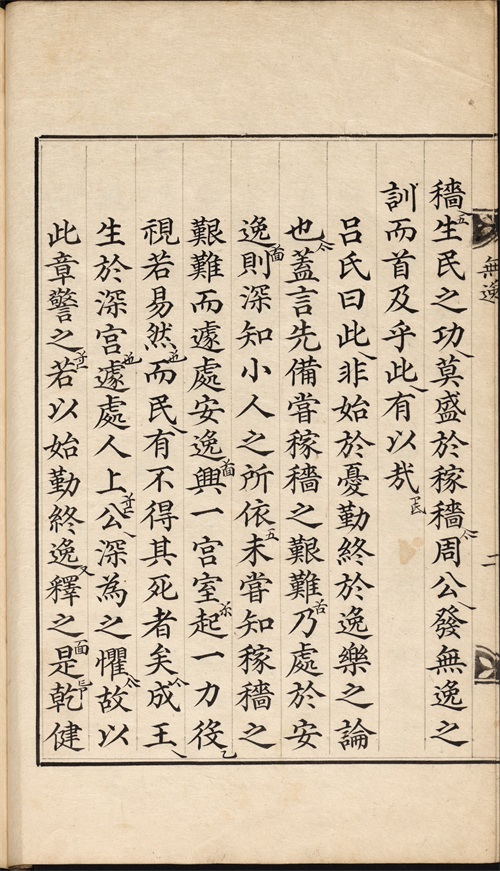 穡生民之功莫盛於稼穡周公發無逸之
訓而首及乎此有以哉
呂氏曰此非始於憂勤終於逸樂之論
也蓋言先備嘗稼穡之艱難乃處於安
逸則深知小人之所依未嘗知稼穡之
艱難而遽處安逸興一宮室起一力役
視若易然而民有不得其死者矣成王
生於深宮遽處人上公深為之懼故以
此章警之若以始勤終逸釋之是乾健
無逸
二